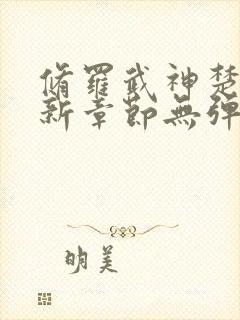 脩羅武神楚
新章節無彈
明美